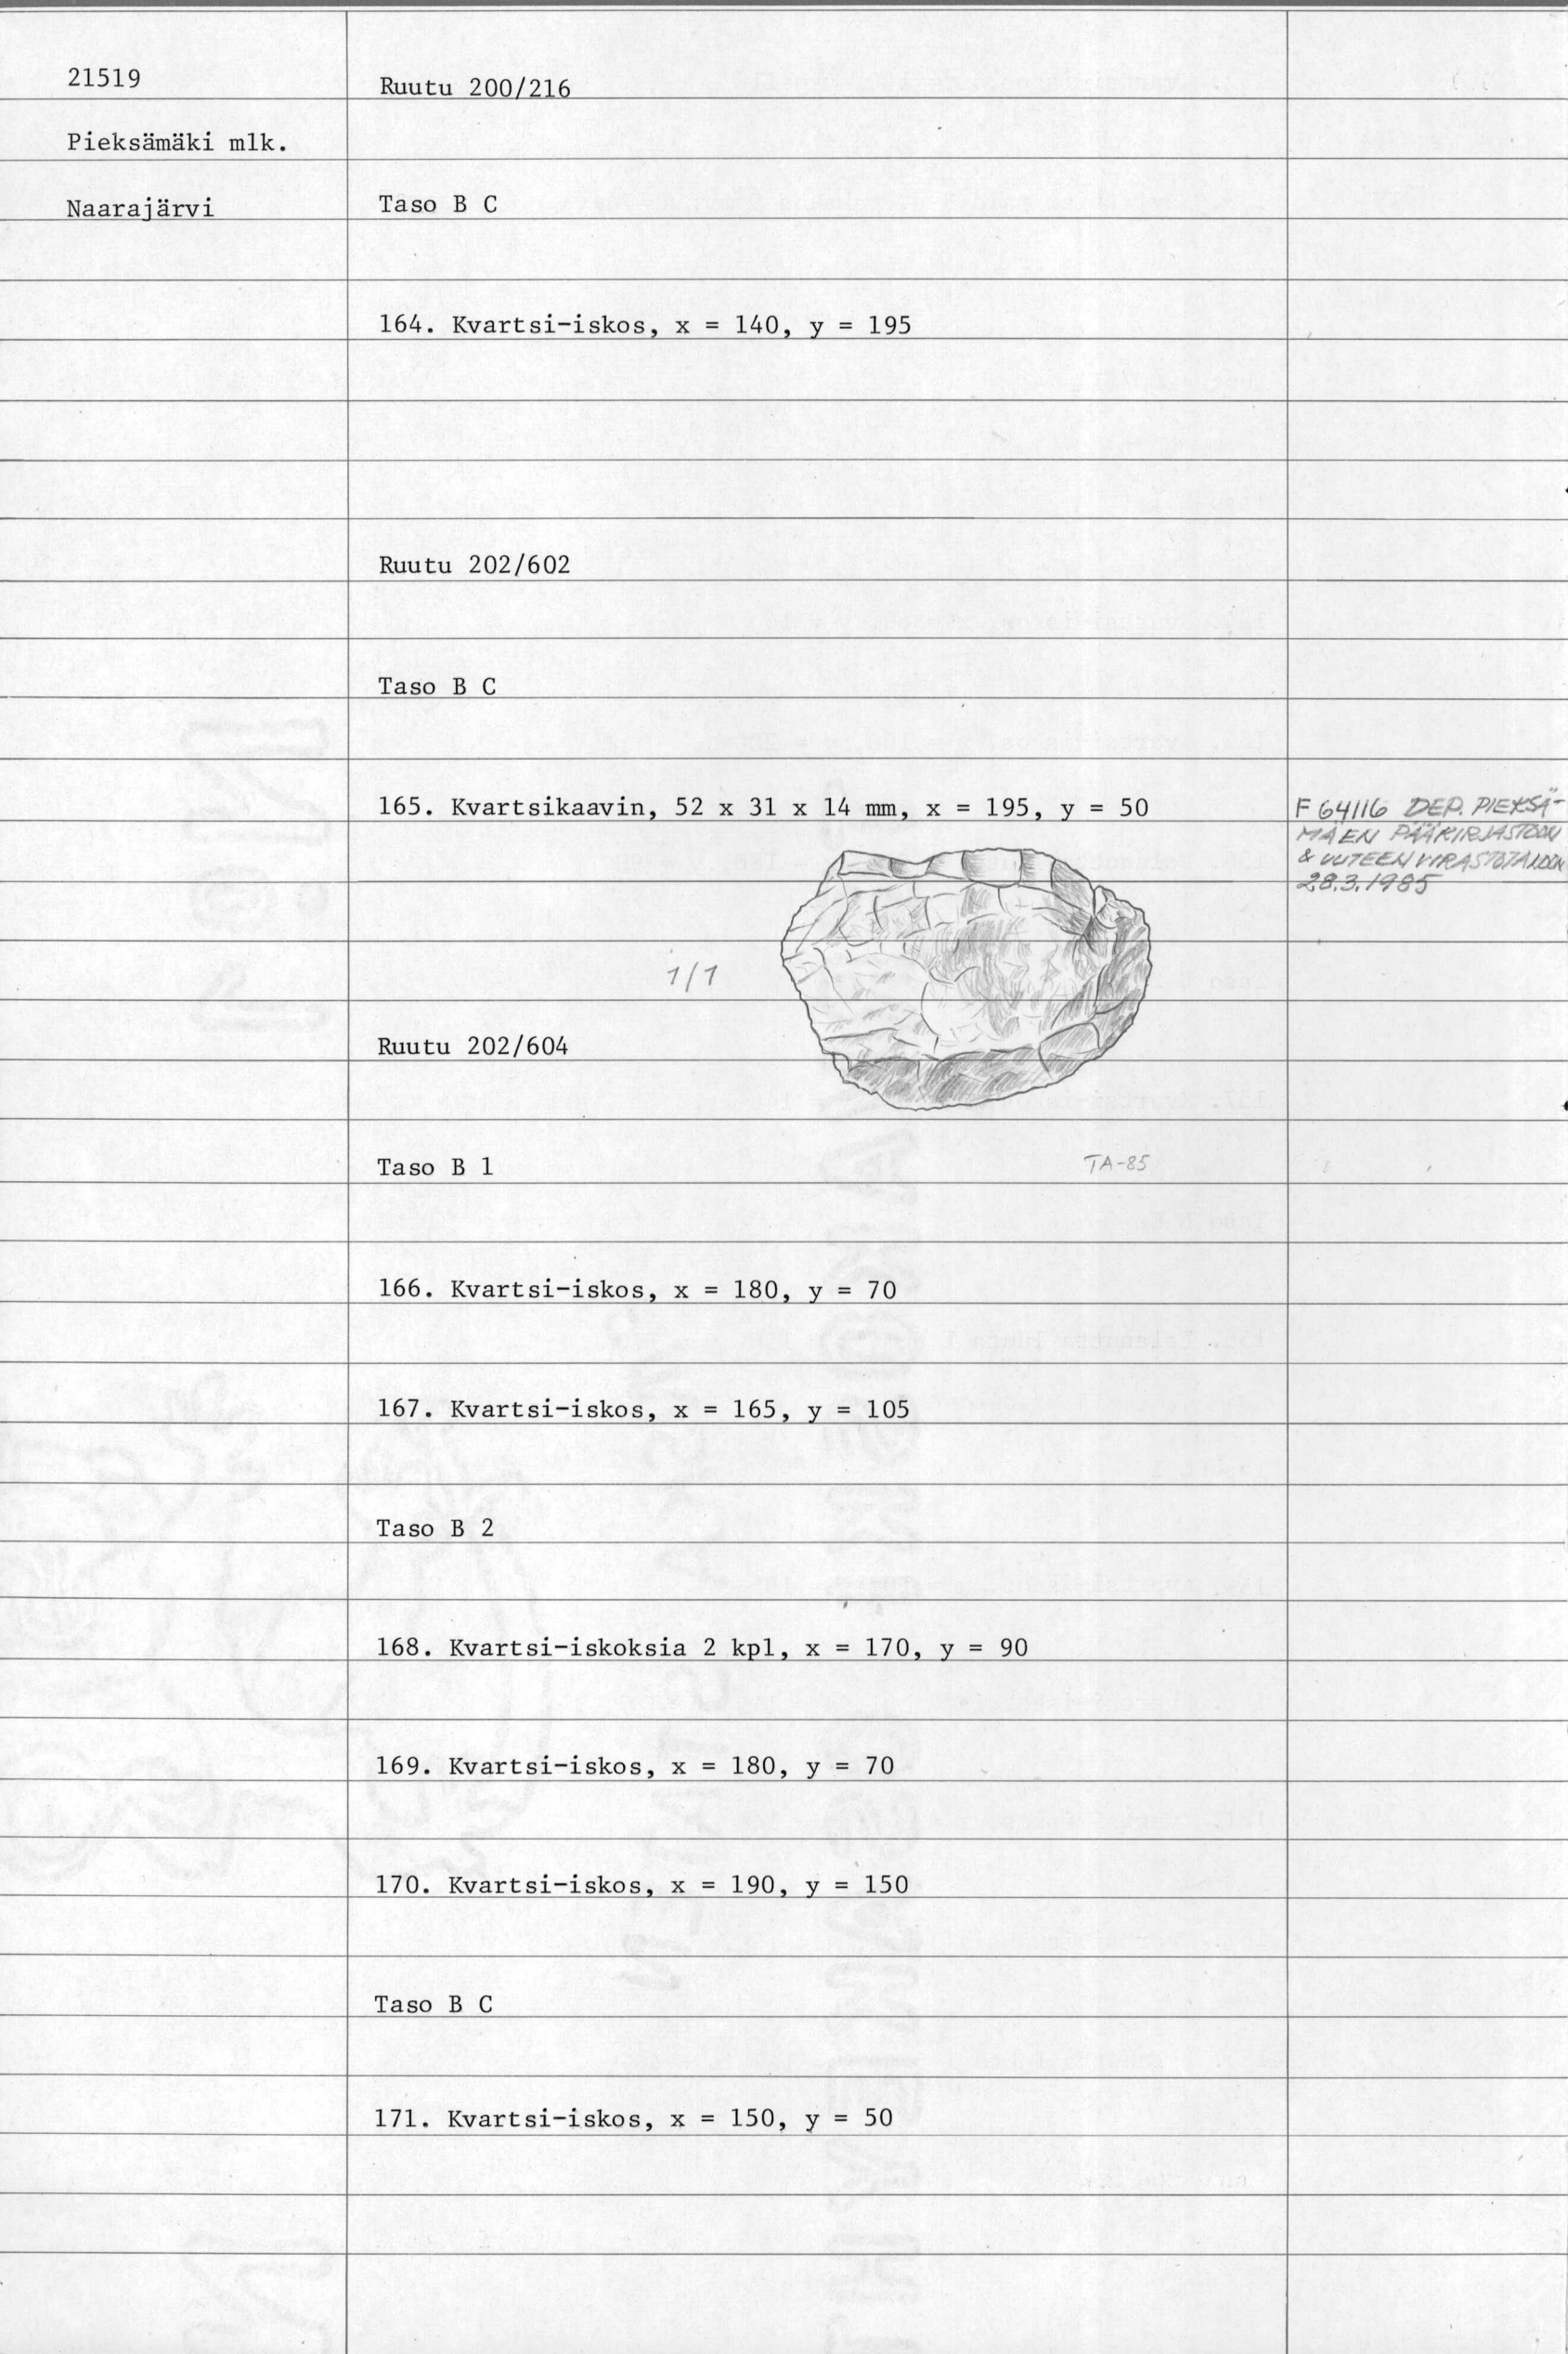 21519
Pieksämäki mlk.
Naarajärvi
Ruutu 200/216
Taso B C
164. Kvartsi-iskos, x = 140, y = 195
Ruutu 202/602
Taso B C
165. Kvartsikaavin, 52 x 31 x 14 mm, x = 195, y = 50
F 64116 DEP. PIEKSÄ-
MÄEN PÄÄKIRJASTOON
& UUTEEN VIRASTOTALOON
28.3.1985
1/1
Ruutu 202/604
Taso B 1
TA-85
166. Kvartsi-iskos, x = 180, y = 70
167. Kvartsi-iskos, x = 165, y = 105
Taso B 2
168. Kvartsi-iskoksia 2 kpl, x = 170, y = 90
169. Kvartsi-iskos, x = 180, y = 70
170. Kvartsi-iskos, x = 190, y = 150
Taso B C
171. Kvartsi-iskos, x = 150, y = 50